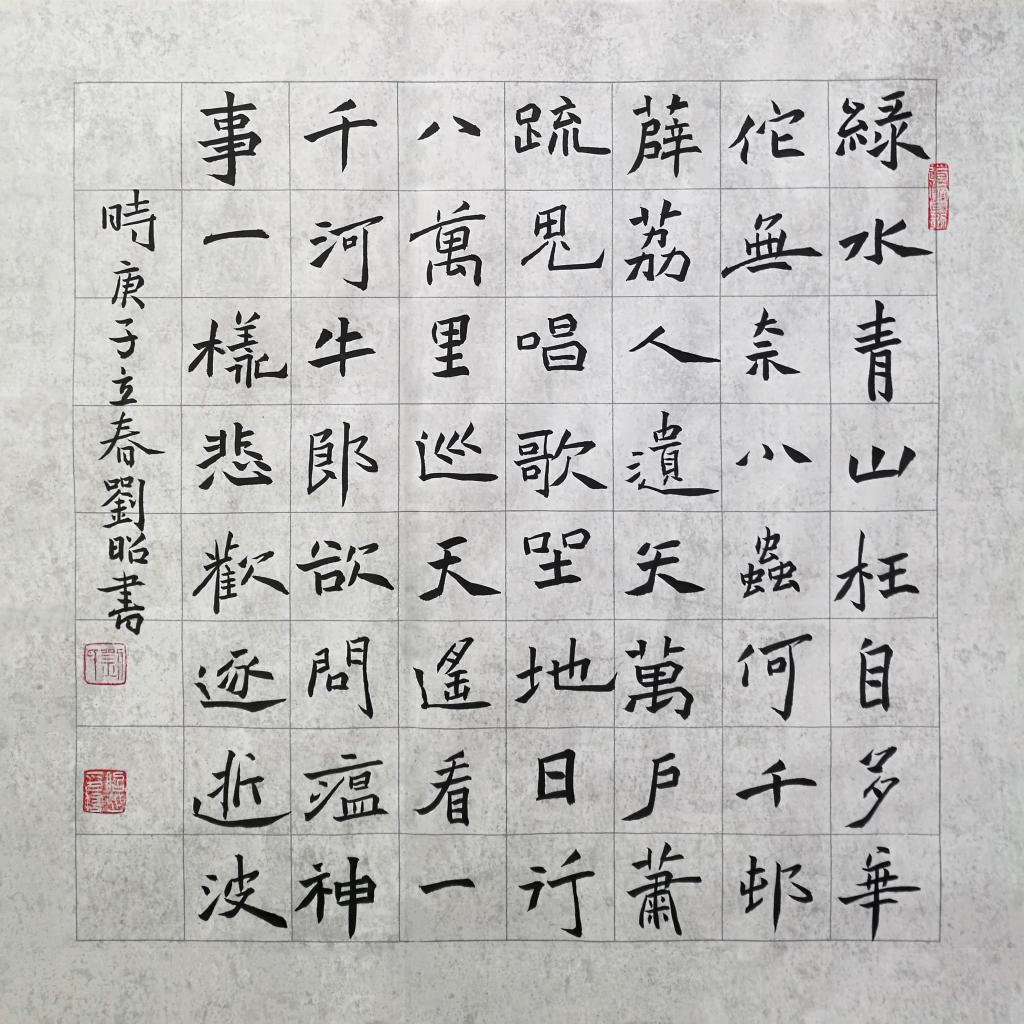 綠水青山枉自多華
佗無奈小蟲何千邨
薜荔人遺矢萬戶蕭
疏鬼唱歌坐地日行
八萬里巡天遙看一
千河牛郎欲問瘟神
事一樣悲歡逐逝波
時庚子立春劉昭書